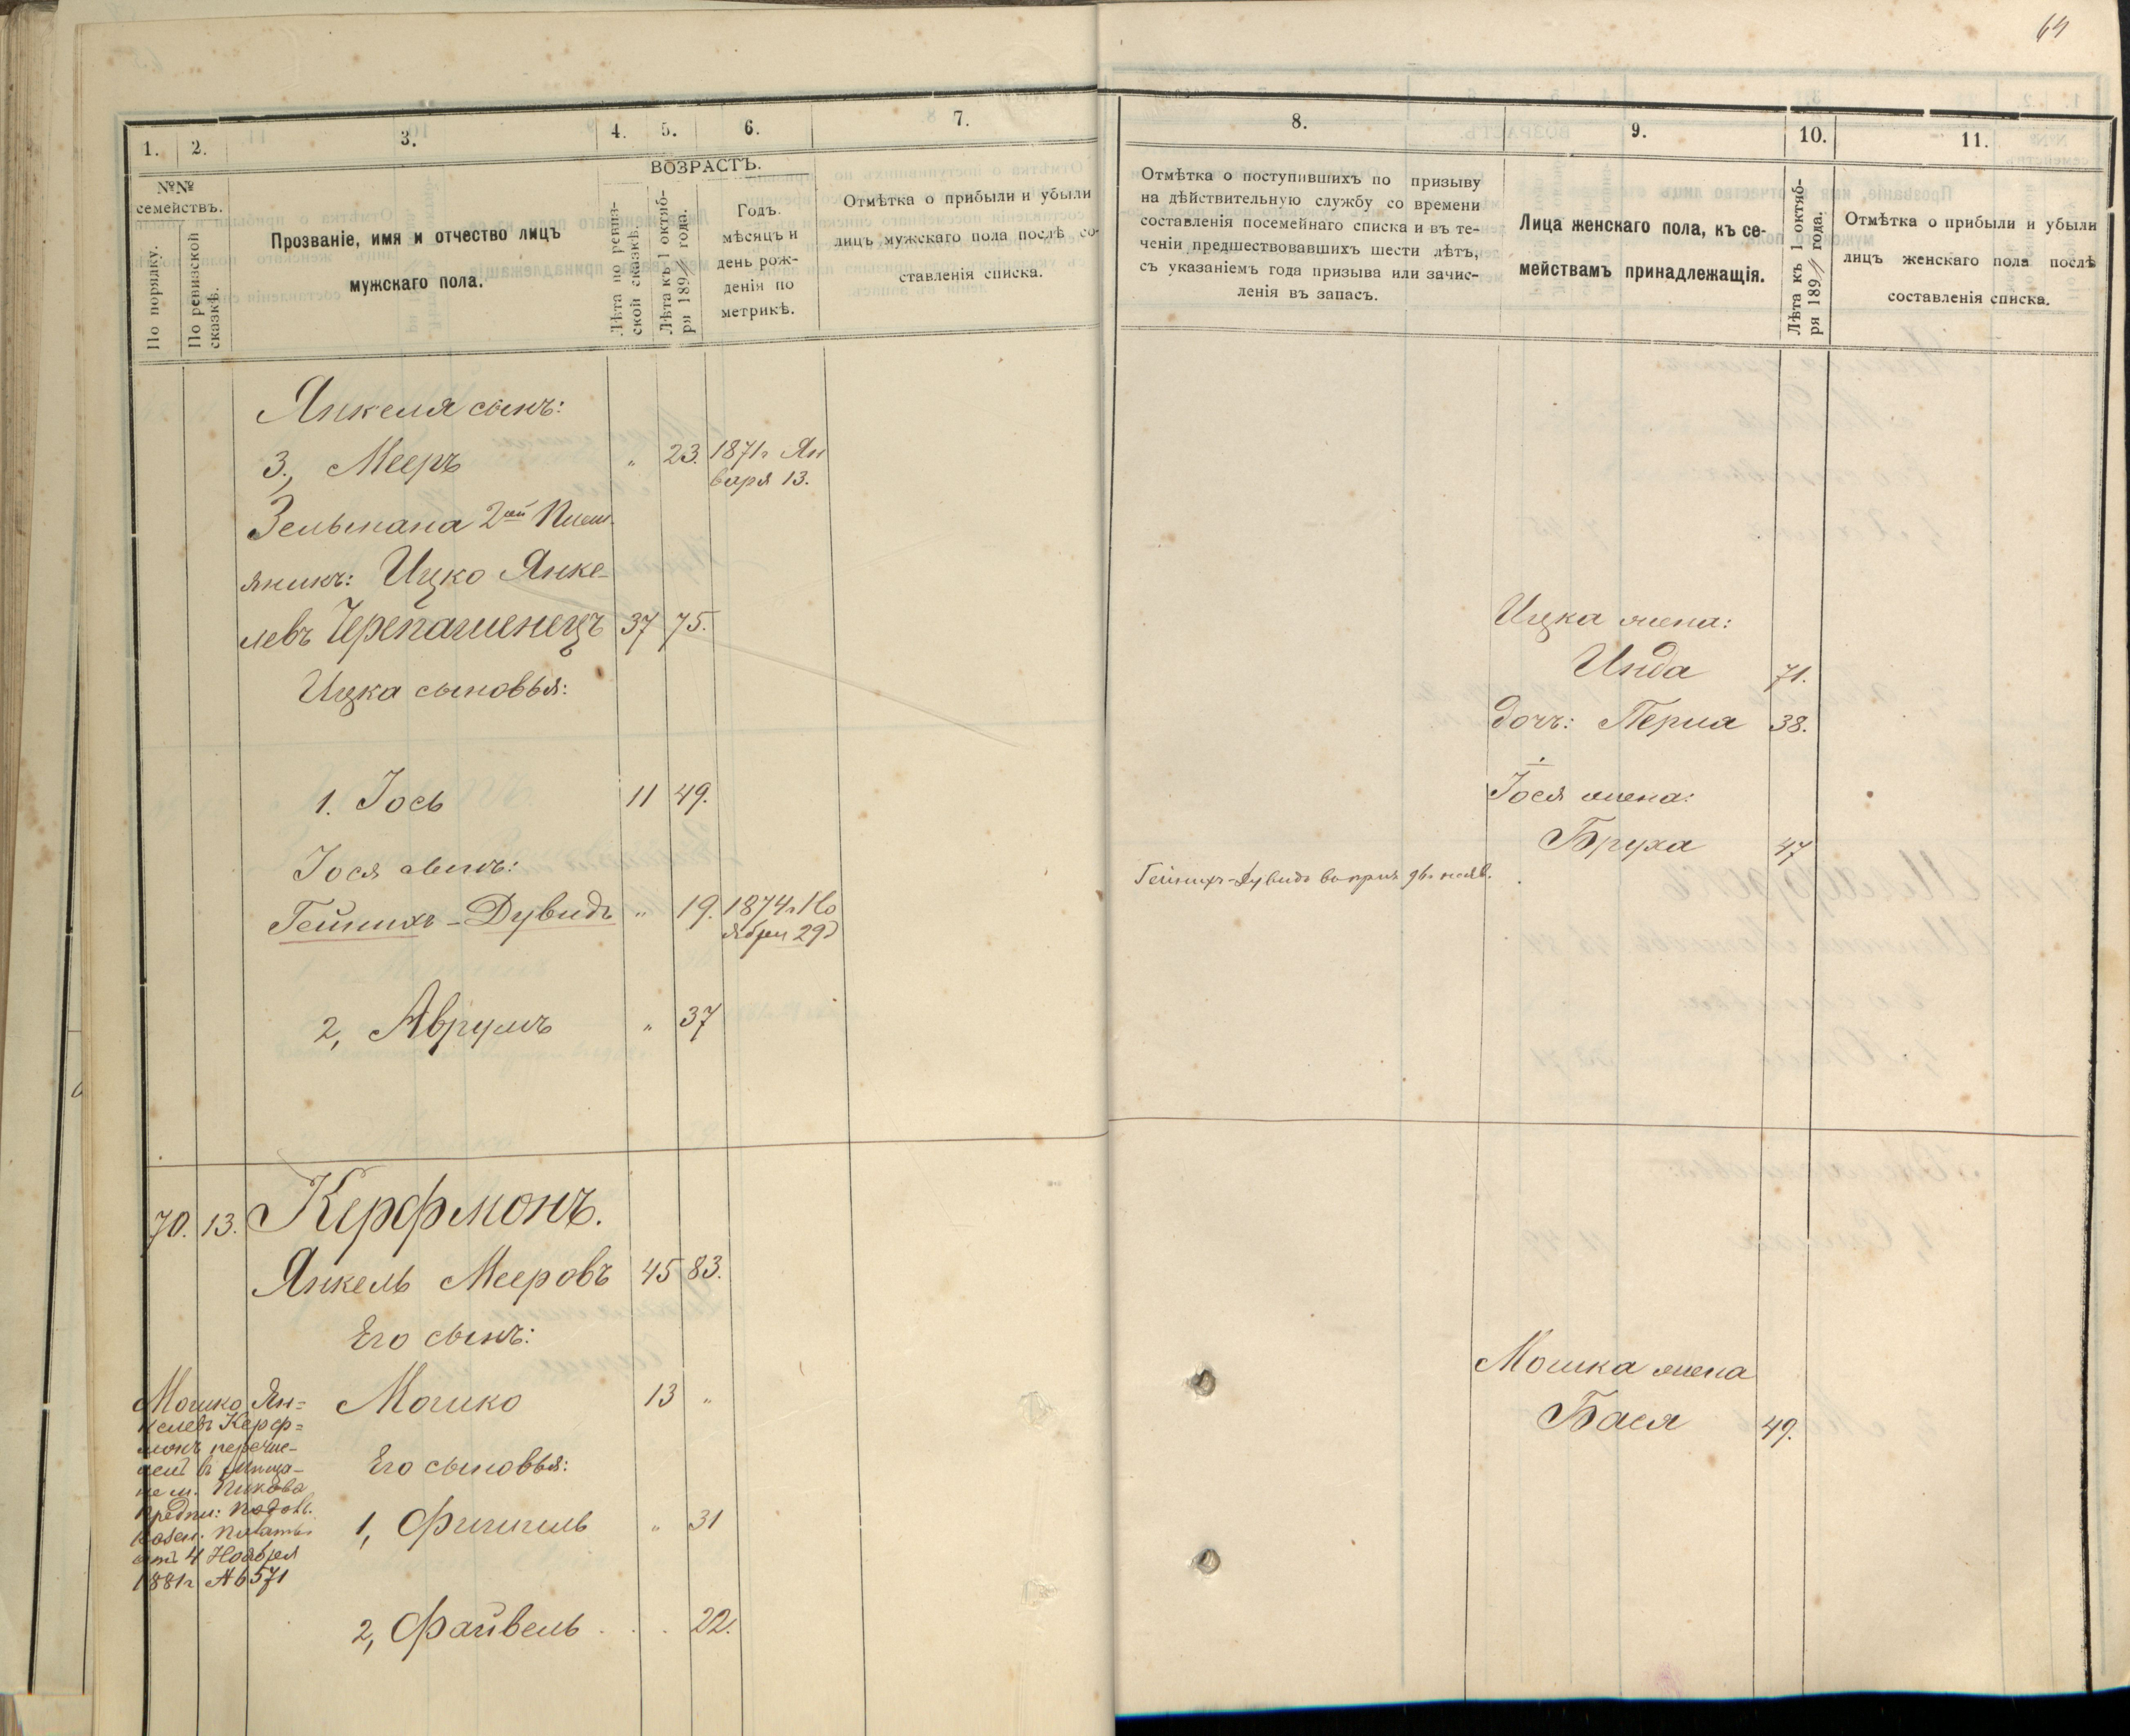 64
1.
2.
3.
4.
5.
6.
7.
№№
семействъ.
По порядку.
По ревизской
сказкѣ.
Прозваніе, имя и отчество лицъ
мужскаго пола.
ВОЗРАСТЪ.
Лѣта по ревиз-
ской сказкѣ.
Лѣта къ 1 октяб-
ря 189 года.
Годъ.
мѣсяцъ и
день рож-
денія по
метрикѣ.
Отмѣтка о прибыли и убыли
лицъ мужскаго пола послѣ со-
ставленія списка.
Янкеля сынъ:
3, Мееръ " 23. 1871г Ян
варя 13.
Зельмана 2ой Плем
яникъ: Ицко Янке-
левъ Черепашенецъ 37 75.
Ицка сыновья:
1. Іось 11 49.
Іося сынъ:
Гейнихъ-Дувидъ " 19. 1874г Но
ября 29д
2, Аврумъ " 37
70. 13. Керфмонъ.
Янкель Мееровъ 45 83.
Его сынъ:
Мошко 13 "
Его сыновья:
1, Фишель " 31
2, Файвель . . . 22.
Мошко Ян=
келевъ Керф=
монъ перечис-
лен въ мѣща-
не м. Пикова
предпи: Подол.
казен. Палаты
отъ 4 Ноября
1881г № 571
8.
9.
10.
11.
Отмѣтка о поступившихъ по призыву
на дѣйствительную службу со времени
составленія посемейнаго списка и въ те-
ченіи предшествовавшихъ шести лѣтъ,
съ указаніемъ года призыва или зачис-
ленія въ запасъ.
Лица женскаго пола, къ се-
мействамъ принадлежащія.
Лѣта къ 1 октяб-
ря 189 года.
Отмѣтка о прибыли и убыли
лицъ женскаго пола послѣ
составленія списка.
Ицка жена:
Инда 71.
дочь: Перла 38.
Іося жена:
Бруха 47
Гейнихъ-Дувидъ въ приз 96г неяв.
Мошка жена
Бася 49.